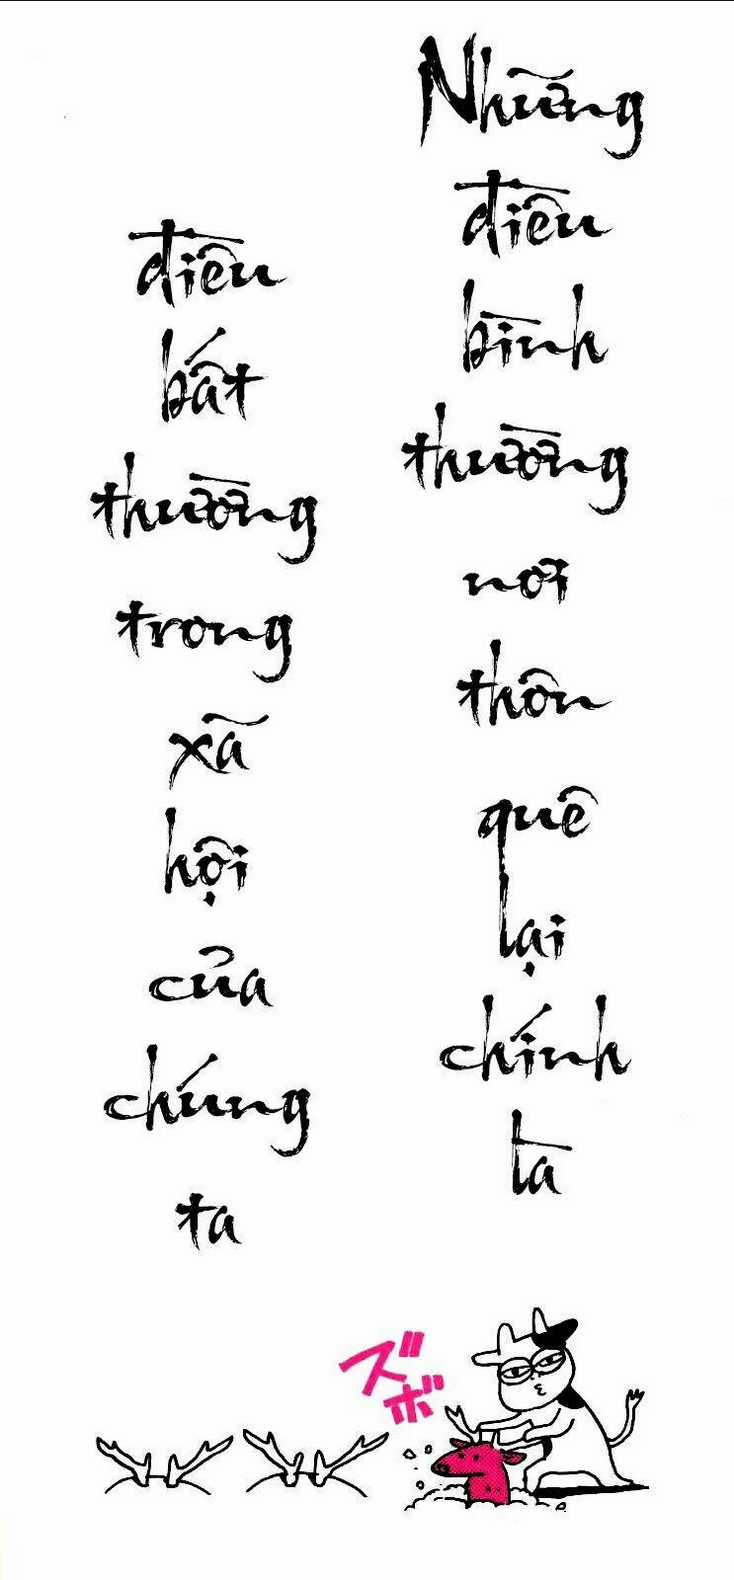 Những
điều
bình
thường
nơi
thôn
quê
lại
chính
là
điều
bất
thường
trong
xã
hội
của
chúng
ta
ズボ